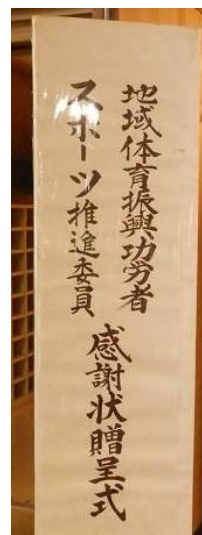 地域体育振興功労者
スポーツ推進委員
感謝状贈呈式